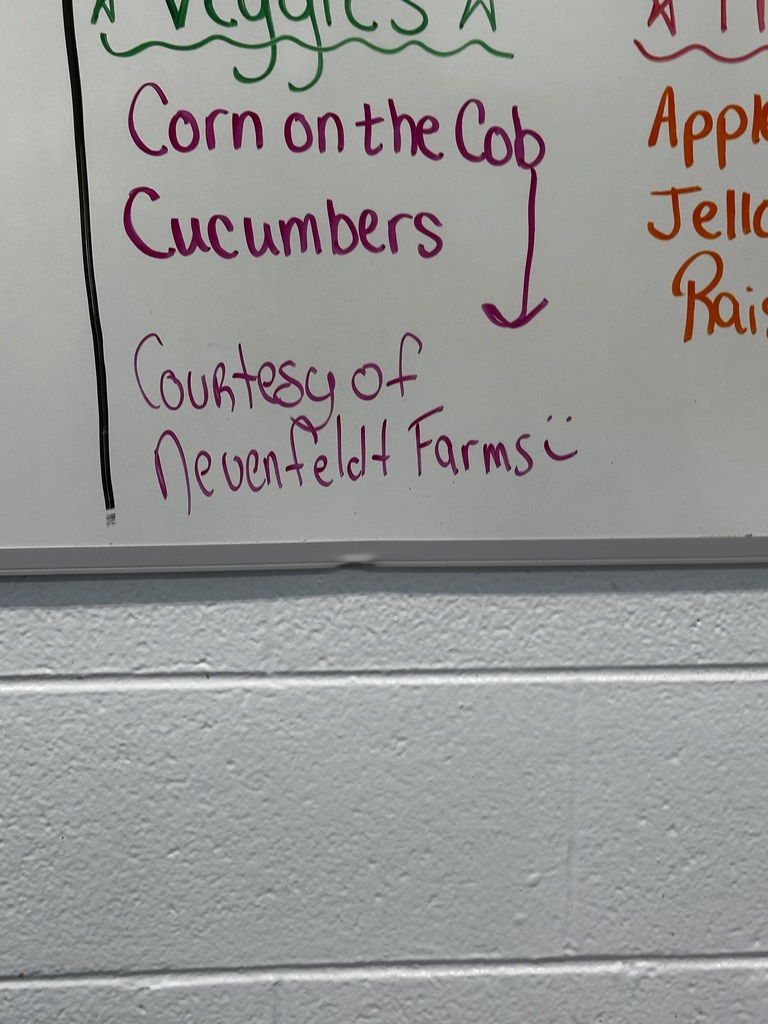 Veggies
Corn on the Cob
Cucumbers
Courtesy of
Nevenfeldt Farms
Apple
Jello
Rais